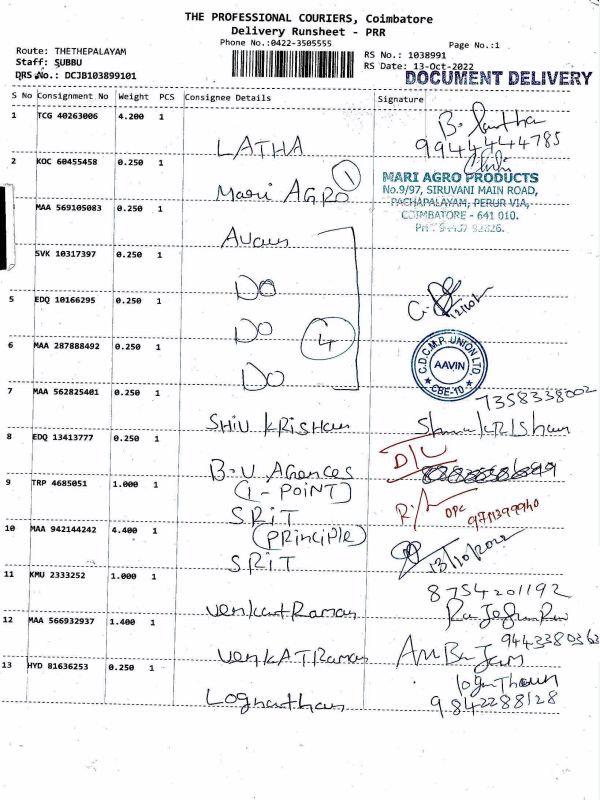 THE PROFESSIONAL COURIERS, Coimbatore
Delivery Runsheet - PRR
Phone No.:0422-3505555
Page No.:1
Route: THETHEPALAYAM
Staff: SUBBU
DRS No.: DCJB103899101
RS No.: 1038991
RS Date: 13-Oct-2022
DOCUMENT DELIVERY
S No Consignment No Weight PCS Consignee Details Signature
1 TCG 40263006 4.200 1
LATHA
B. Lantha
9944444785
2 KOC 60455458 0.250 1
Maari AGRO 1
MARI AGRO PRODUCTS
No.9/97, SIRUVANI MAIN ROAD,
PACHAPALAYAM, PERUR VIA,
COIMBATORE - 641 010.
MAA 569105083 0.250 1
Avain
SVK 10317397 0.250 1
DO
5 EDQ 10166295 0.250 1
DO 4
6 MAA 287888492 0.250 1
DO
C.D.C.M.P. UNION LTD.
AAVIN
CBE-10
7 MAA 562825401 0.250 1
SHIV KRISHan
7358338002
8 EDQ 13413777 0.250 1
B.V Agences
(1-POINT)
D/L
9 TRP 4685051 1.000 1
SRIT
(PRINCIPLE)
10 MAA 942144242 4.400 1
SRIT
13/10/2022
11 KMU 2333252 1.000 1
VenkantRaman
8754201192
12 MAA 566932937 1.400 1
VenkATRaman
9443380363
13 HYD 81636253 0.250 1
Lognanthan
9842288128